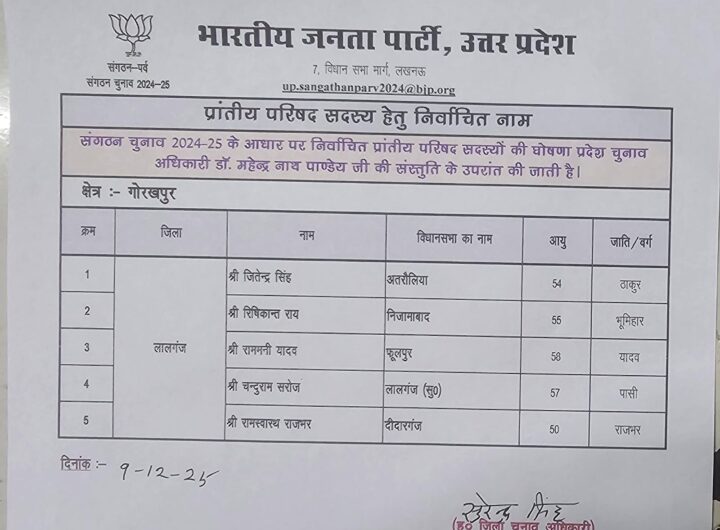 भारतीय जनता पार्टी, उत्तर प्रदेश
संगठन-पर्व
संगठन चुनाव 2024-25
7, विधान सभा मार्ग, लखनऊ
up.sangathanparv2024@bjp.org
प्रांतीय परिषद सदस्य हेतु निर्वाचित नाम
संगठन चुनाव 2024-25 के आधार पर निर्वाचित प्रांतीय परिषद सदस्यों की घोषणा प्रदेश चुनाव
अधिकारी डॉ. महेन्द्र नाथ पाण्डेय जी की संस्तुति के उपरांत की जाती है।
क्षेत्र :- गोरखपुर
क्रम जिला नाम विधानसभा का नाम आयु जाति/वर्ग
1 श्री जितेन्द्र सिंह अतरौलिया 54 ठाकुर
2 श्री रिषिकान्त राय निजामाबाद 55 भूमिहार
3 लालगंज श्री राममनी यादव फूलपुर 58 यादव
4 श्री चन्दुराम सरोज लालगंज (सु0) 57 पासी
5 श्री रामस्वारथ राजभर दीदारगंज 50 राजभर
दिनांक :- 9-12-25
सुरेन्द्र सिंह
(ह0 जिला चुनाव अधिकारी)